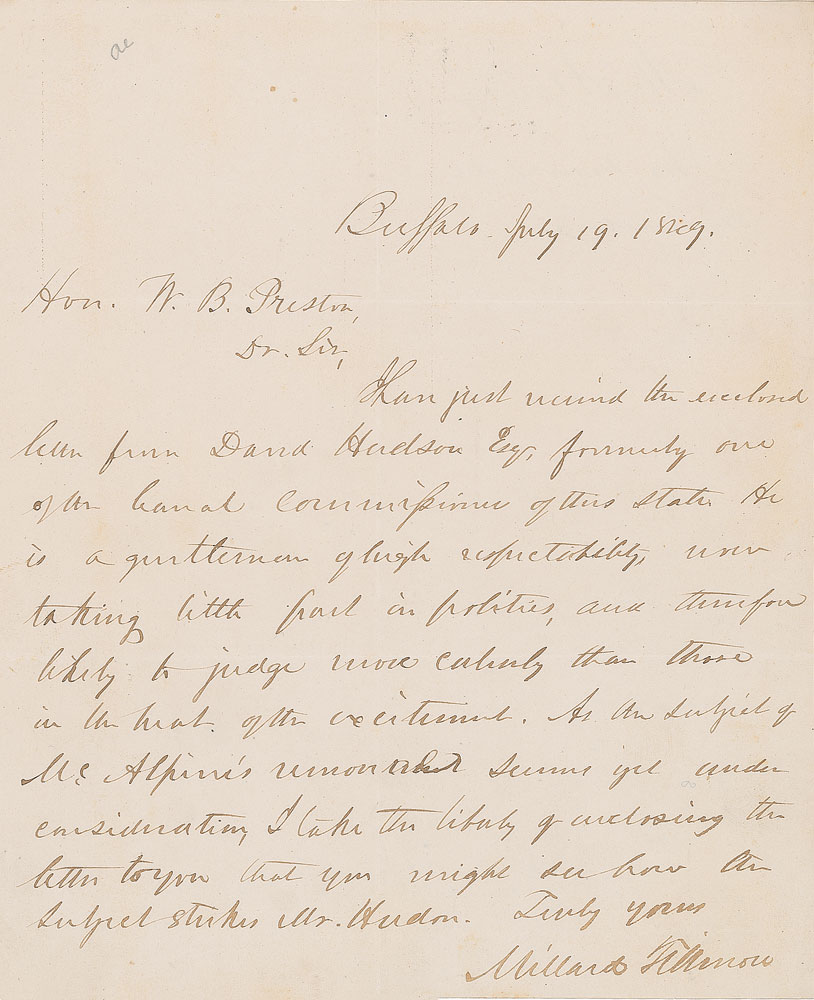 Buffalo. July 19. 1849.
Hon. W. B. Preston,
Dr. Sir,
I have just received the enclosed
letter from David Hudson Esq, formerly one
of the Canal Commissioner of this state. He
is a gentleman of high respectability, now
taking little part in politics, and therefore
likely to judge more calmly than those
in the heat of the excitement. As the subject of
Mc Alpine's removal seems yet under
consideration, I take the liberty of enclosing the
letter to you that you might see how the
subject strikes Mr. Hudon. Truly yours
Millard Fillmore